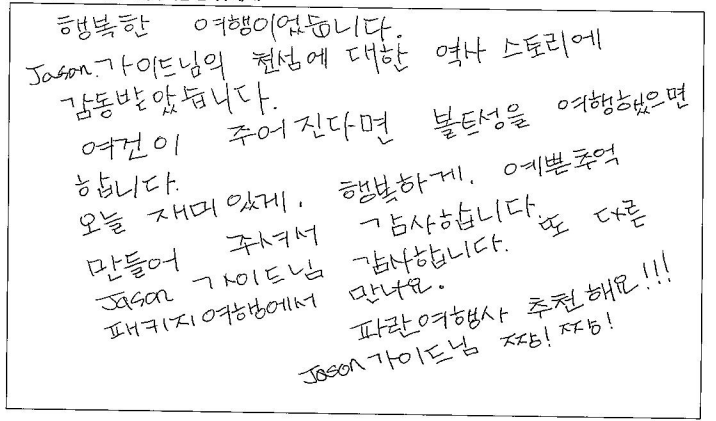 행복한 여행이었습니다.
Jason.가이드님의 천섬에 대한 역사 스토리에
감동받았습니다.
여건이 주어진다면 볼트성을 여행했으면
합니다.
오늘 재미있게. 행복하게. 예쁜추억
만들어 주셔서 감사합니다.
Jason 가이드님 감사합니다. 또 다른
패키지여행에서 만나요.
파란여행사 추천해요!!!
Jason가이드님 짱! 짱!